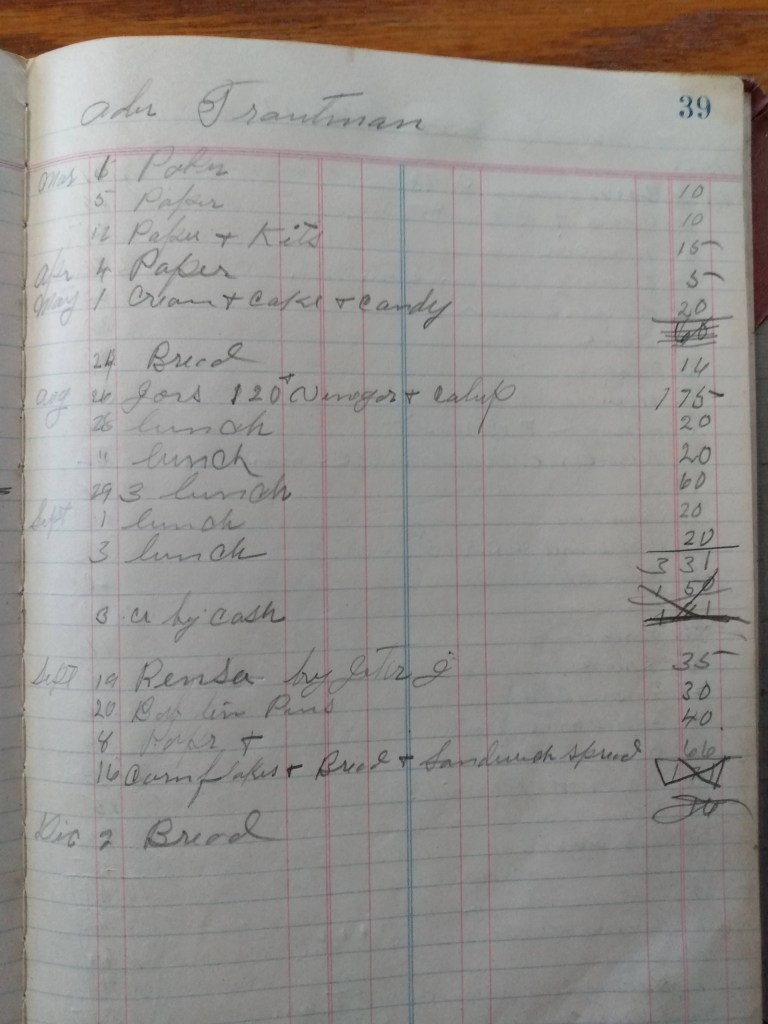 39
Trautman
Mar 6 Paper 10
5 Paper 10
12 Paper + Kits 15
Apr 4 Paper 5
May 1 Cream + Cake + Candy 20
60
24 Bread 14
Aug 26 Jars 120 + Vinegar + 1 75
26 lunch 20
" lunch 20
29 3 lunch 60
Sept 1 lunch 20
3 lunch 20
3 31
1 50
3 cr by cash
Sept 19 by 35
20 Pins 30
8 + 40
16 Cornflakes + Bread + Sandwich spread 66
Dec 2 Bread